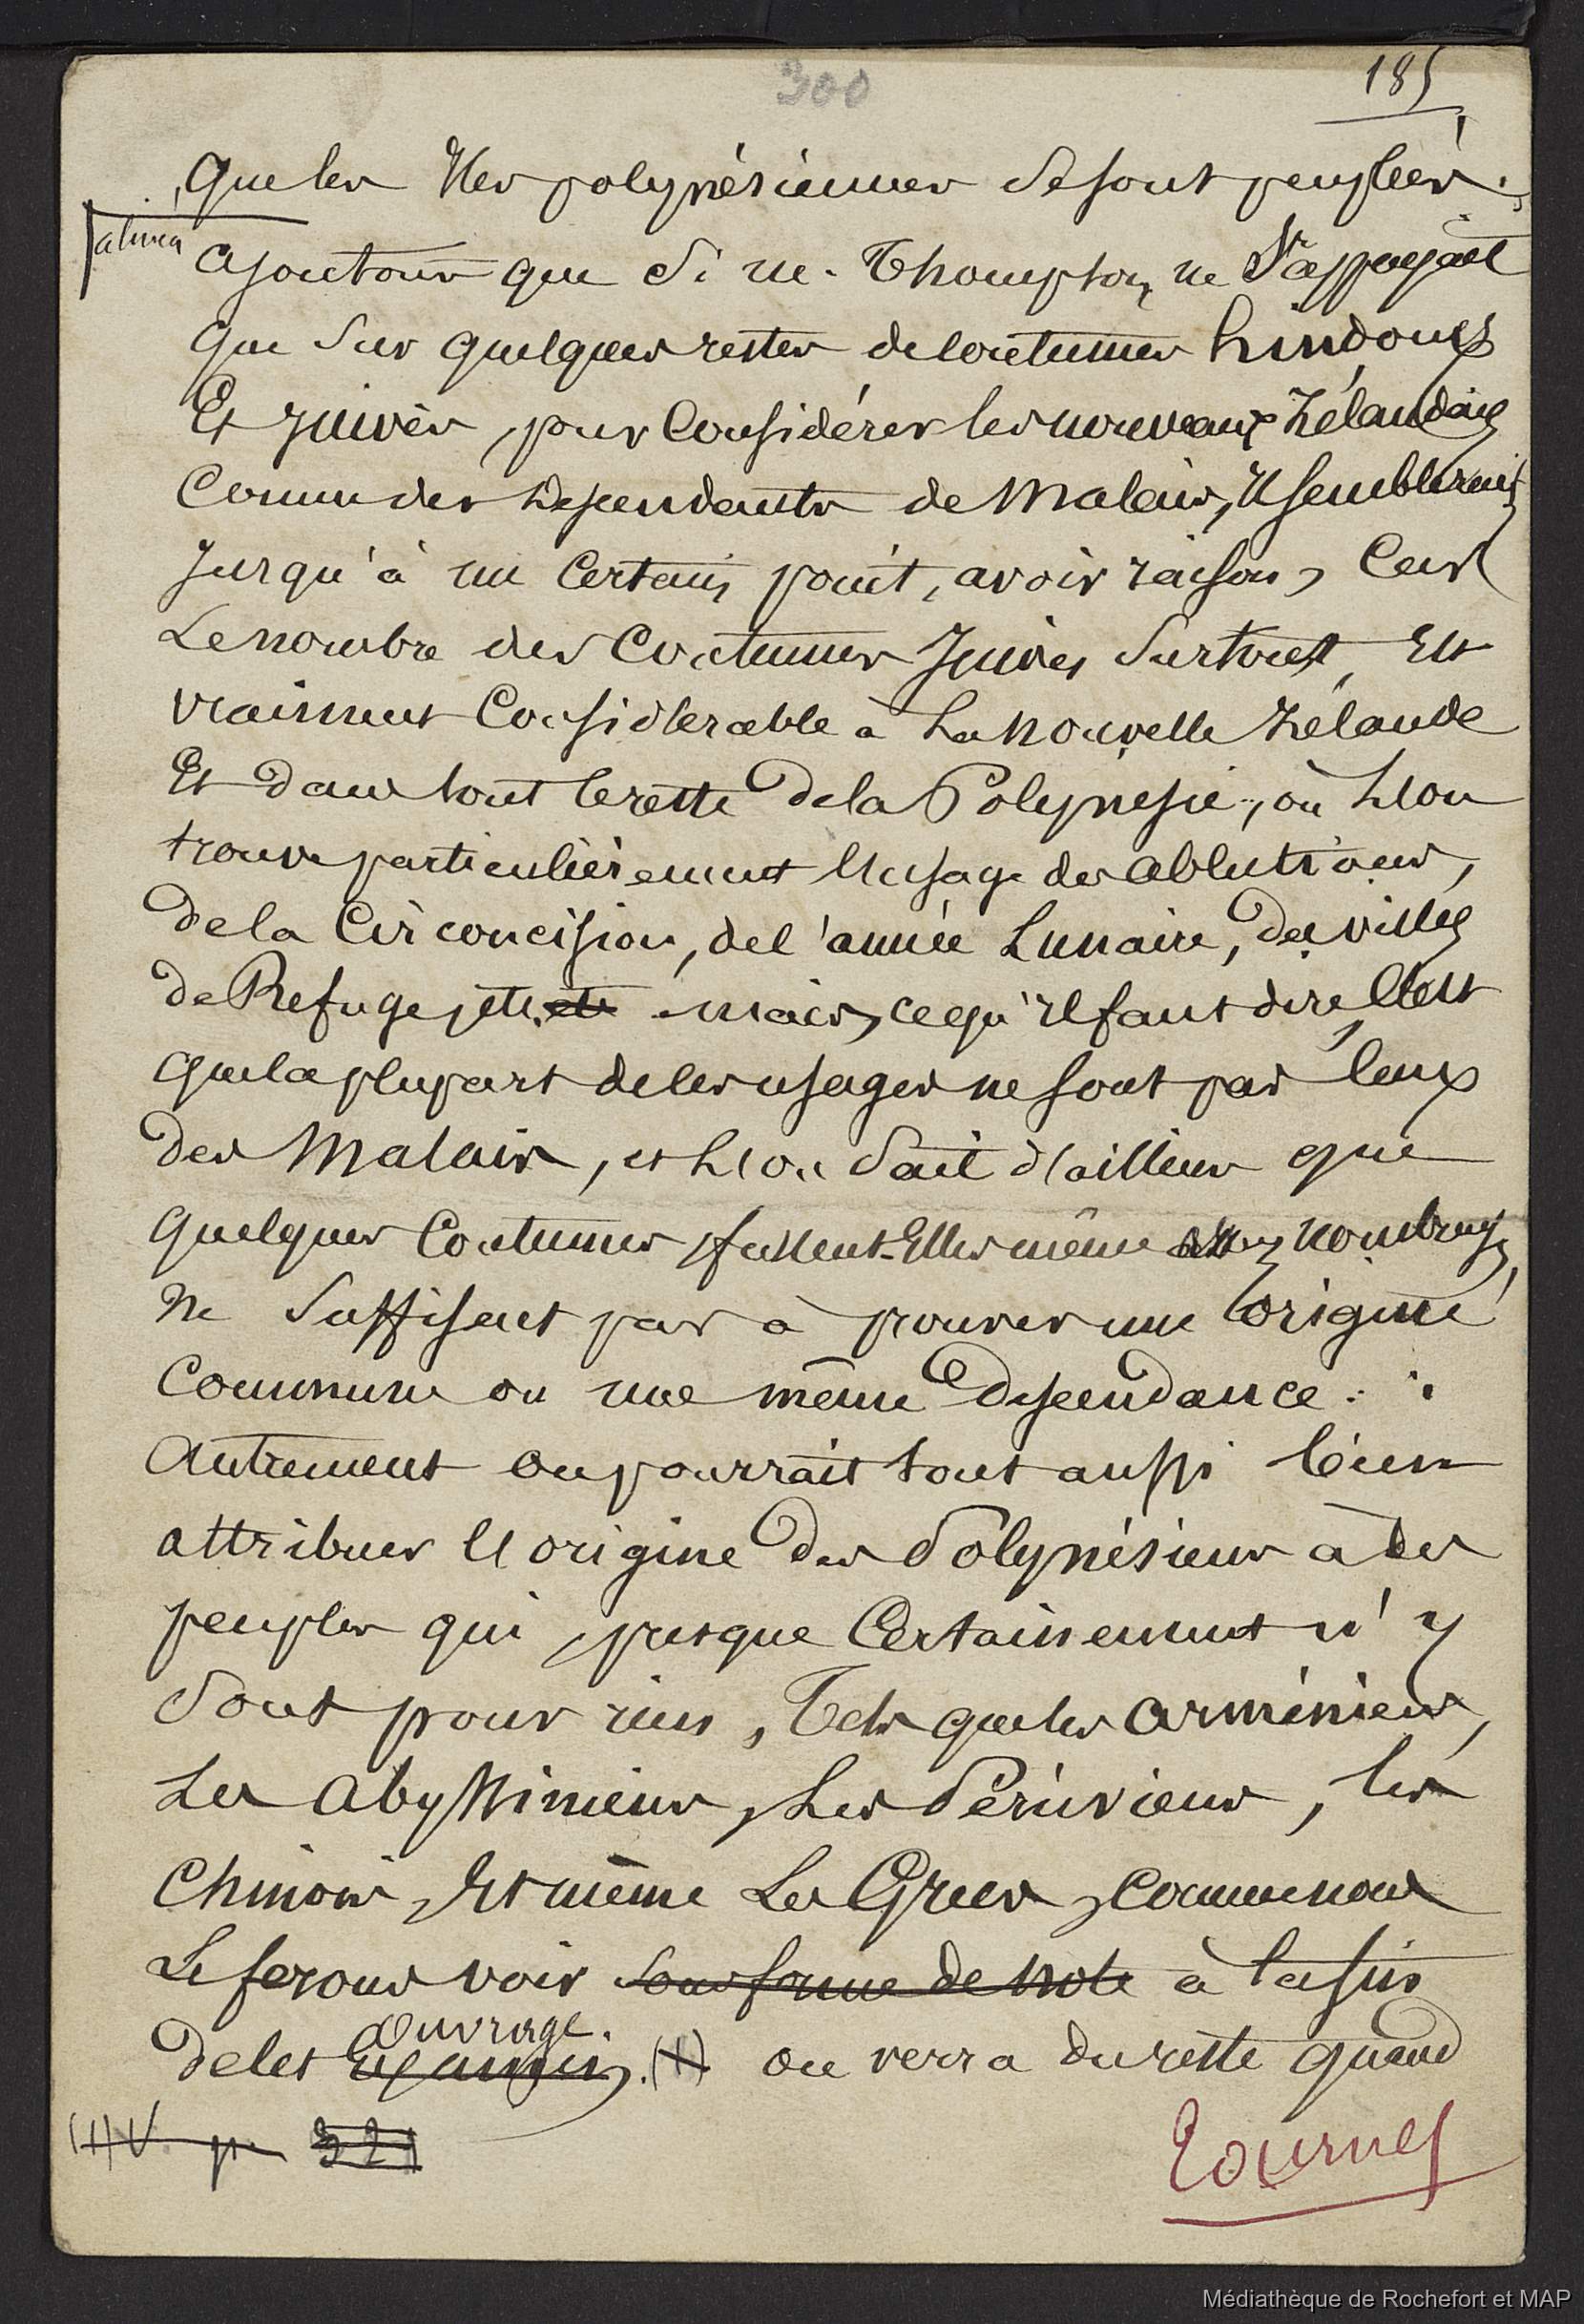 300
185
que les îles polynésiennes se sont peuplées.
alinéa
ajoutons que si M. Thompson ne s'appuyait
que sur quelques restes de coutumes hindoues
Et juives, pour considérer les nouveaux Zélandais
comme des descendants de Malais, il semblerait
jusqu'à un certain point, avoir raison, car
Le nombre des coutumes juives surtout, est
vraiment considérable à la nouvelle Zélande
Et dans tout le reste de la Polynésie, où l'on
trouve particulièrement l'usage des ablutions,
de la circoncision, de l'année Lunaire, des villes
de Refuge, etc. etc mais, ce qu'il faut dire, c'est
que la plupart de ces usages ne sont pas ceux
des Malais, et l'on sait d'ailleurs que
quelques coutumes, fussent-Elles même assez nombreuses,
ne suffisent pas à prouver une origine
commune ou une même descendance.
autrement on pourrait tout aussi bien
attribuer l'origine des Polynésiens à des
peuples qui, presque certainement n'y
sont pour rien, Tels que les arméniens,
Les abyssiniens, Les Péruviens, les
Chinois, Et même Les Grecs, comme nous
Le ferons voir sous forme de note à la fin
ouvrage.
de cet Examen. (1) on verra du reste quand
(1) V. p. 321
Tournez
Médiathèque de Rochefort et MAP